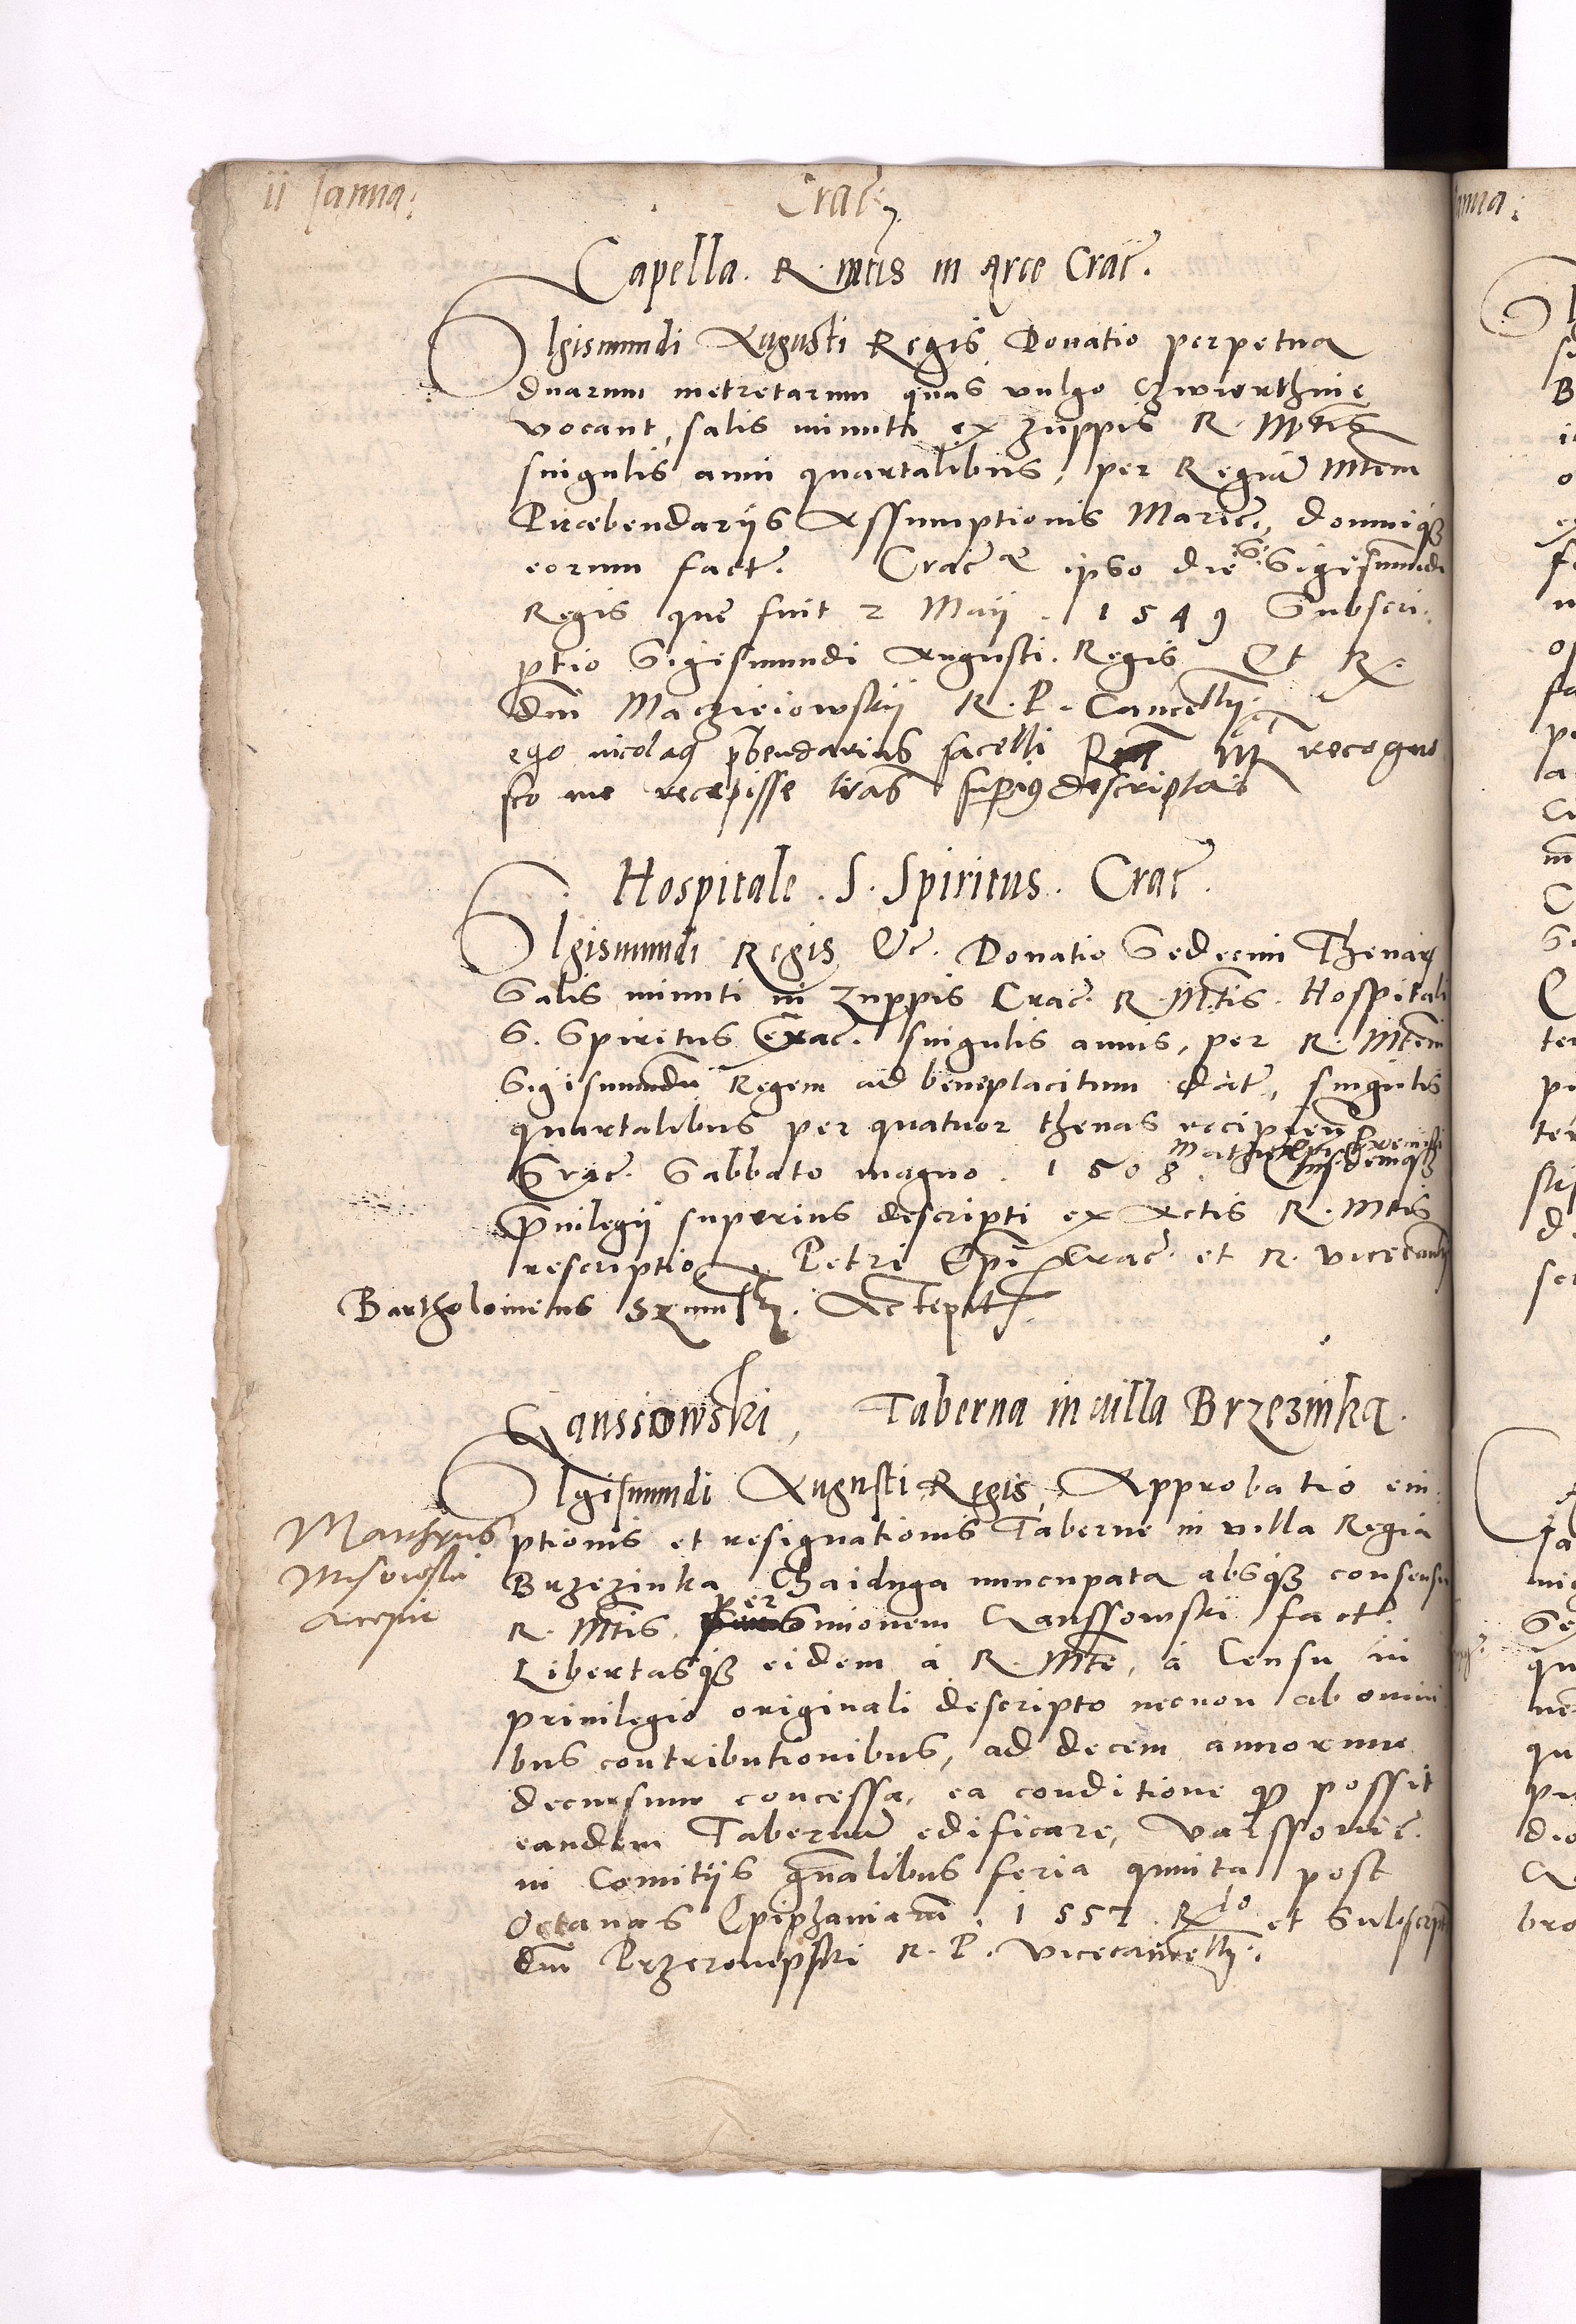 ii Janua:
Crac.
Capella. R. mtis in Arce Crac.
Sigismundi Augusti Regis Donatio perpetua
duarum metretarum quas vulgo czwierthnie
vocant, salis minuti ex zuppis R. Mtis
singulis anni quartalibus, per Regiā Mtem
Præbendariis Assumptionis Mariæ, domuiqȝ
eorum fact. Crac ipso die S. Sigismundi
Regis quę fuit 2 Maij. 1549 Subscri-
ptio Sigismundi Augusti. Regis Et R.
dni Maczieiowskij R. P. Cancellrij
ego nicolaꝰ p̄bendarius sacelli M recogno
sco me recepisse lr̄as supꝰ descriptas
Hospitale. S. Spiritus. Crac.
Sigismundi Regis &c. Donatio Sedecim Thenar
Salis minuti in zuppis Crac. R. Mtis. Hospitali
S. Spiritus Crac. singulis annis, per R. Mtem
Sigismundū Regem ad beneplacitum dat, singulis
quartalibus per quatuor thenas recipien
Crac. Sabbato magno. 1508. Eiusdemqȝ
Priuilegij superius descripti ex Actis R. Mtis
rescriptio Petri Epī Crac. et R. vicecancellrij
Bartholomeus Acceptt
Ganssiowski, Taberna in uilla Brzezinka.
Sigismundi Augusti Regis, Approbatio em-
ptionis et resignationis Taberne in villa Regia
Brzezinka Chaiduga nuncupata absqȝ consensu
R. Mtis per Simonem Ganssowski fact.
Libertasqȝ eidem à R. Mte, à Censu in
priuilegio originali descripto necnon ab omni-
bus contributionibus, ad decem annorum
decursum concessa, ea conditione qđ possit
eandem Tabernā edificare, Varssouie.
in Comitijs gn̄alibus feria quinta post
Octauas Epiphaniarū. 1557. Rlo et Subscript
dni Przerempski R. P. vicecancellrij.
Mathęus
Misowski
Accepit